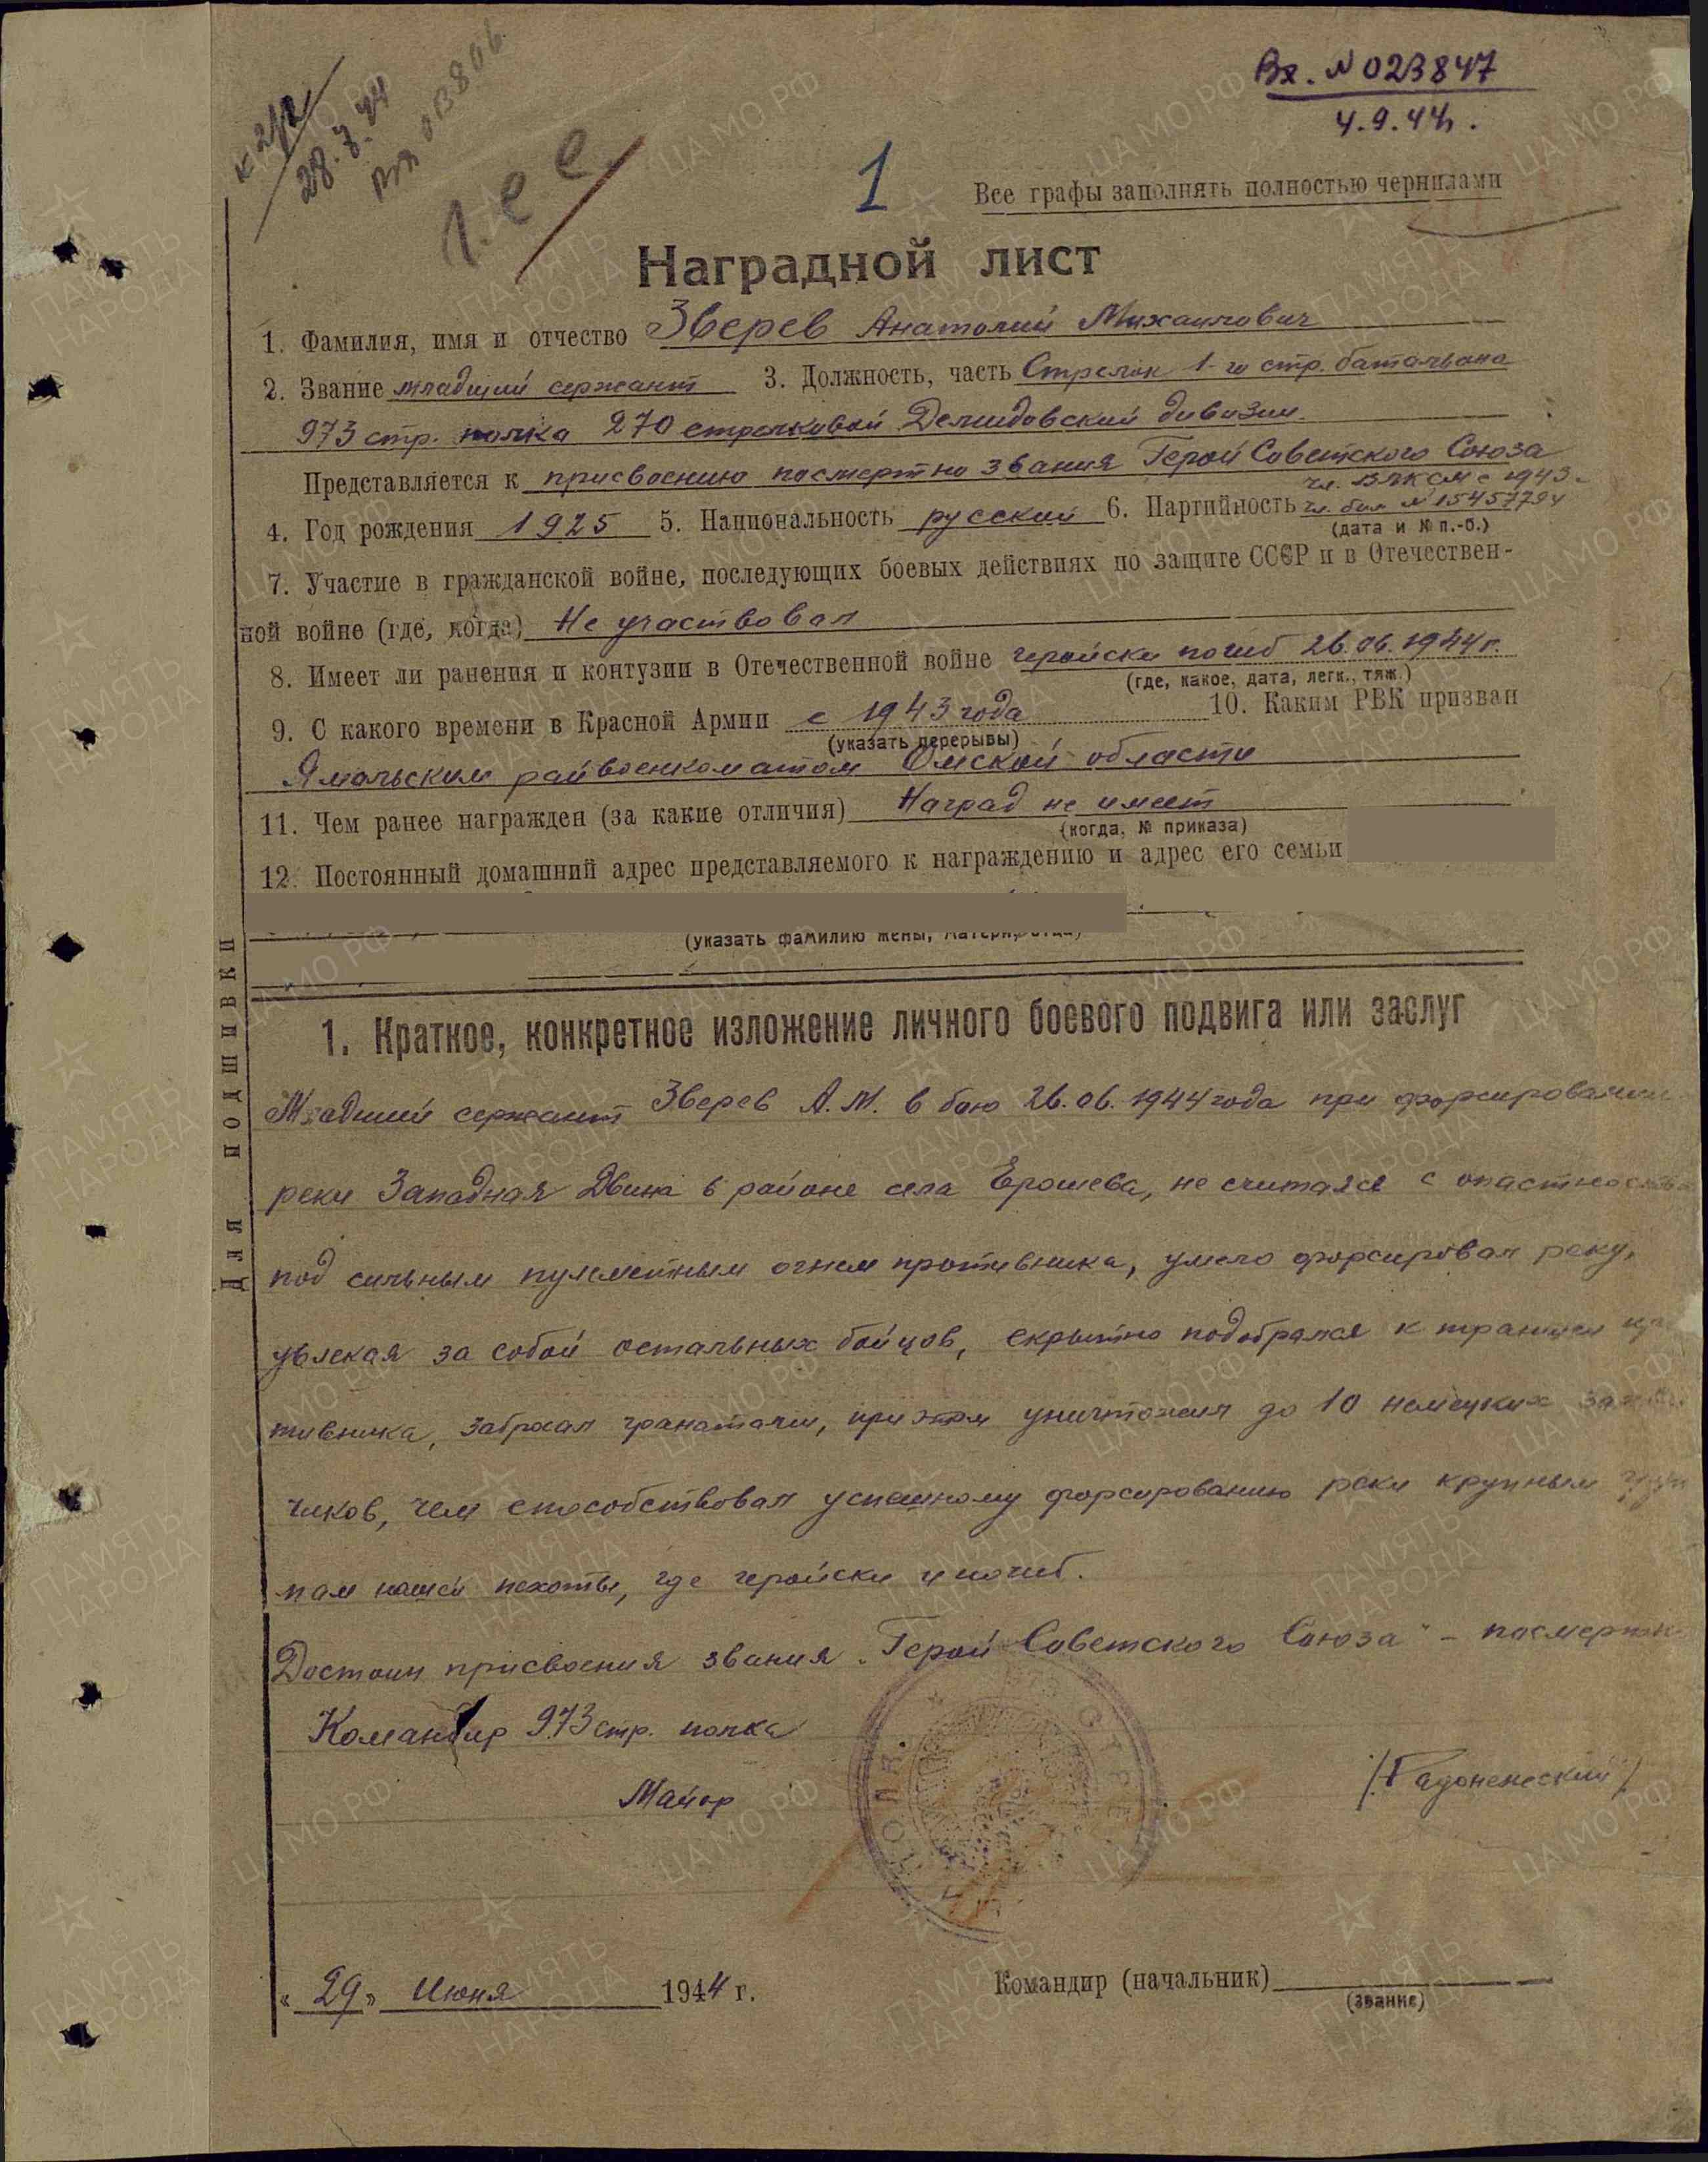 Вх. № 023847
4.9.44г.
28.7.44
1
Все графы заполнять полностью чернилами
Наградной лист
1. Фамилия, имя и отчество Зверев Анатолий Михайлович
2. Звание младший сержант 3. Должность, часть Стрелок 1-го стр. батальона
973 стр. полка 270 стрелковой Демидовский дивизии.
Представляется к присвоению посмертно звания Герой Советского Союза
чл. ВЛКСМ с 1943
4. Год рождения 1925 5. Национальность русский 6. Партийность чл. бил № 15457794
(дата и № п.-б.)
7. Участие в гражданской войне, последующих боевых действиях по защите СССР и в Отечествен-
ной войне (где, когда) Не участвовал
8. Имеет ли ранения и контузии в Отечественной войне геройски погиб 26.06.1944г.
(где, какое, дата, легк., тяж.)
9. С какого времени в Красной Армии с 1943 года 10. Каким РВК призван
(указать перерывы)
Ямальским райвоенкоматом Омской области
11. Чем ранее награжден (за какие отличия) Наград не имеет
(когда, № приказа)
12. Постоянный домашний адрес представляемого к награждению и адрес его семьи
(указать фамилию жены, матери, отца)
Для подшивки
1. Краткое, конкретное изложение личного боевого подвига или заслуг
Младший сержант Зверев А.М. в бою 26.06.1944 года при форсировании
реки Западная Двина в районе села Ерошева, не считаясь с опастностью
под сильным пулеметным огнем противника, умело форсировал реку,
увлекая за собой остальных бойцов, скрытно подобрался к траншеи
тивника, забросал гранатами, при этом уничтожил до 10 немецких
чиков, чем способствовал успешному форсированию реки крупным
пам нашей пехоты, где геройски и погиб.
Достоин присвоения звания „Герой Советского Союза" – посмертно
Командир 973 стр. полка
Майор
"29" Июня 1944 г.
Командир (начальник)
(звание)